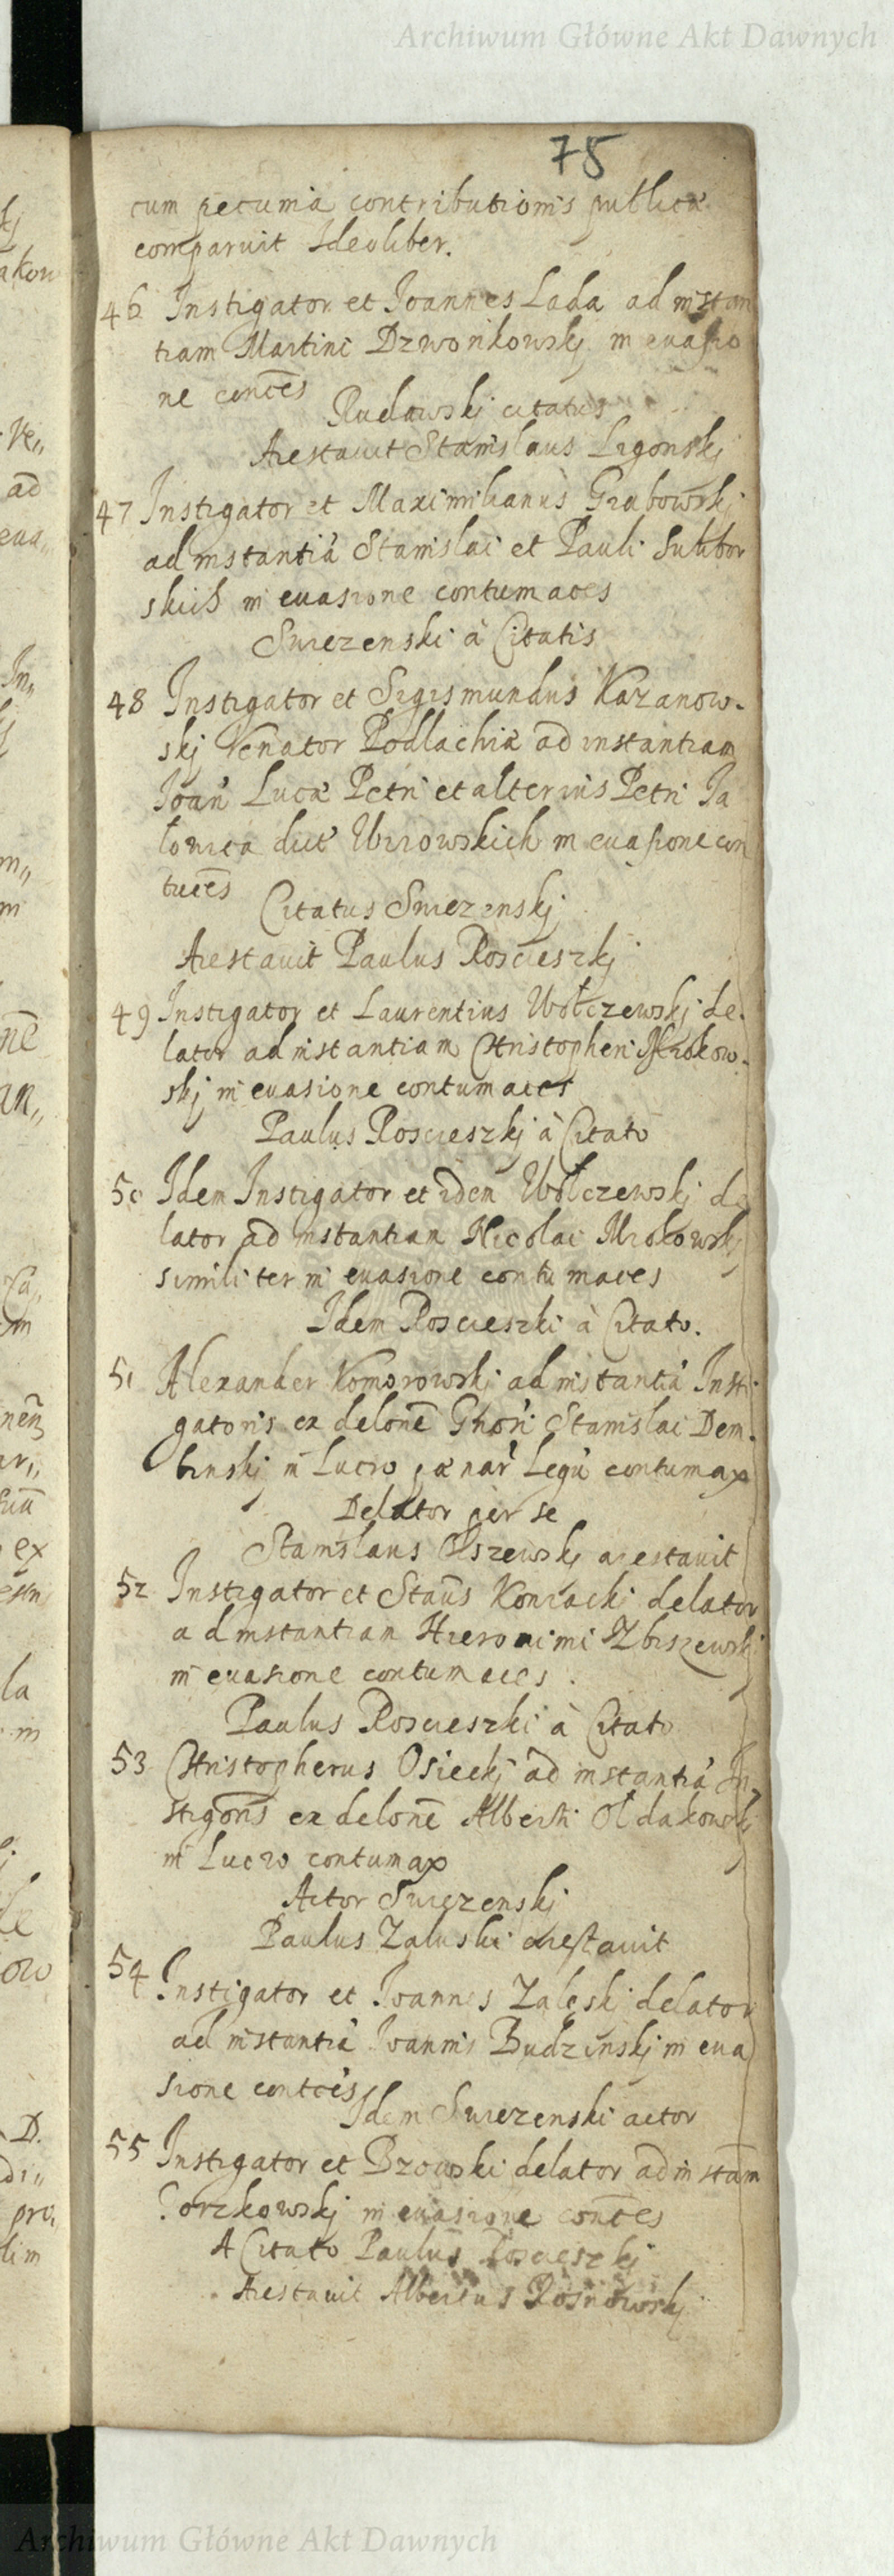 Archiwum Główne Akt Dawnych
75
cum pecunia contributionis publicæ
comparuit Ideo liber.
46 Instigator et Joannes Lada ad instan
tiam Martini Dzwonkowskj in evasio
ne contces
Rudawski citatus
Arestavit Stanislaus Ligonskj
47 Instigator et Maximilianus Grabowskj
ad instantiā Stanislai et Pauli Sulibor
skich in evasione contumaces
Swiezenski à Citatis
48 Instigator et Sigismundus Kazanow-
skj Venator Podlachiæ ad instantiam
Joan Lucæ Petri et alterius Petri Ja
dict in evasione con
tuces
Citatus Swiezenskj
Arestavit Paulus Roscieszkj
49 Instigator et Laurentius Wolczewskj de-
lator ad instantiam Christopheri Mrokow-
skj in evasione contumaces
Paulus Roscieszkj à Citato
50 Idem Instigator et idem Wolczewskj de
lator ad instantiam Nicolai Mrokowskj
similiter in evasione contumaces
Idem Roscieszki à Citato.
51 Alexander Komorowskj ad instantiā Insti
gatoris ex delone Ghosi Stanislai Dem-
binskj in Lucro pænar Legū contumax
Delator per se
Stanislaus Olszewskj arestavit
52 Instigator et Staūs Koniacki delator
ad instantiam Hieronimi Zbiszewskj
in evasione contumaces
Paulus Roscieszki à Citato
53 Christopherus Osieckj ad instantiā In
stigoris ex delone Alberti Oldakowskj
in Lucro contumax
Actor Swiezenskj
Paulus Zaluski arestavit
54 Instigator et Joannes Zaleskj delator
ad instantiā Joannis Budzinskj in eva
sione contces
Idem Swiezenski actor
55 Instigator et Bzowski delator ad instam
Gorzkowskj in evasione contes
A Citato Paulus Roscieszkj
Arestavit Albertus Rosnowskj
Archiwum Główne Akt Dawnych